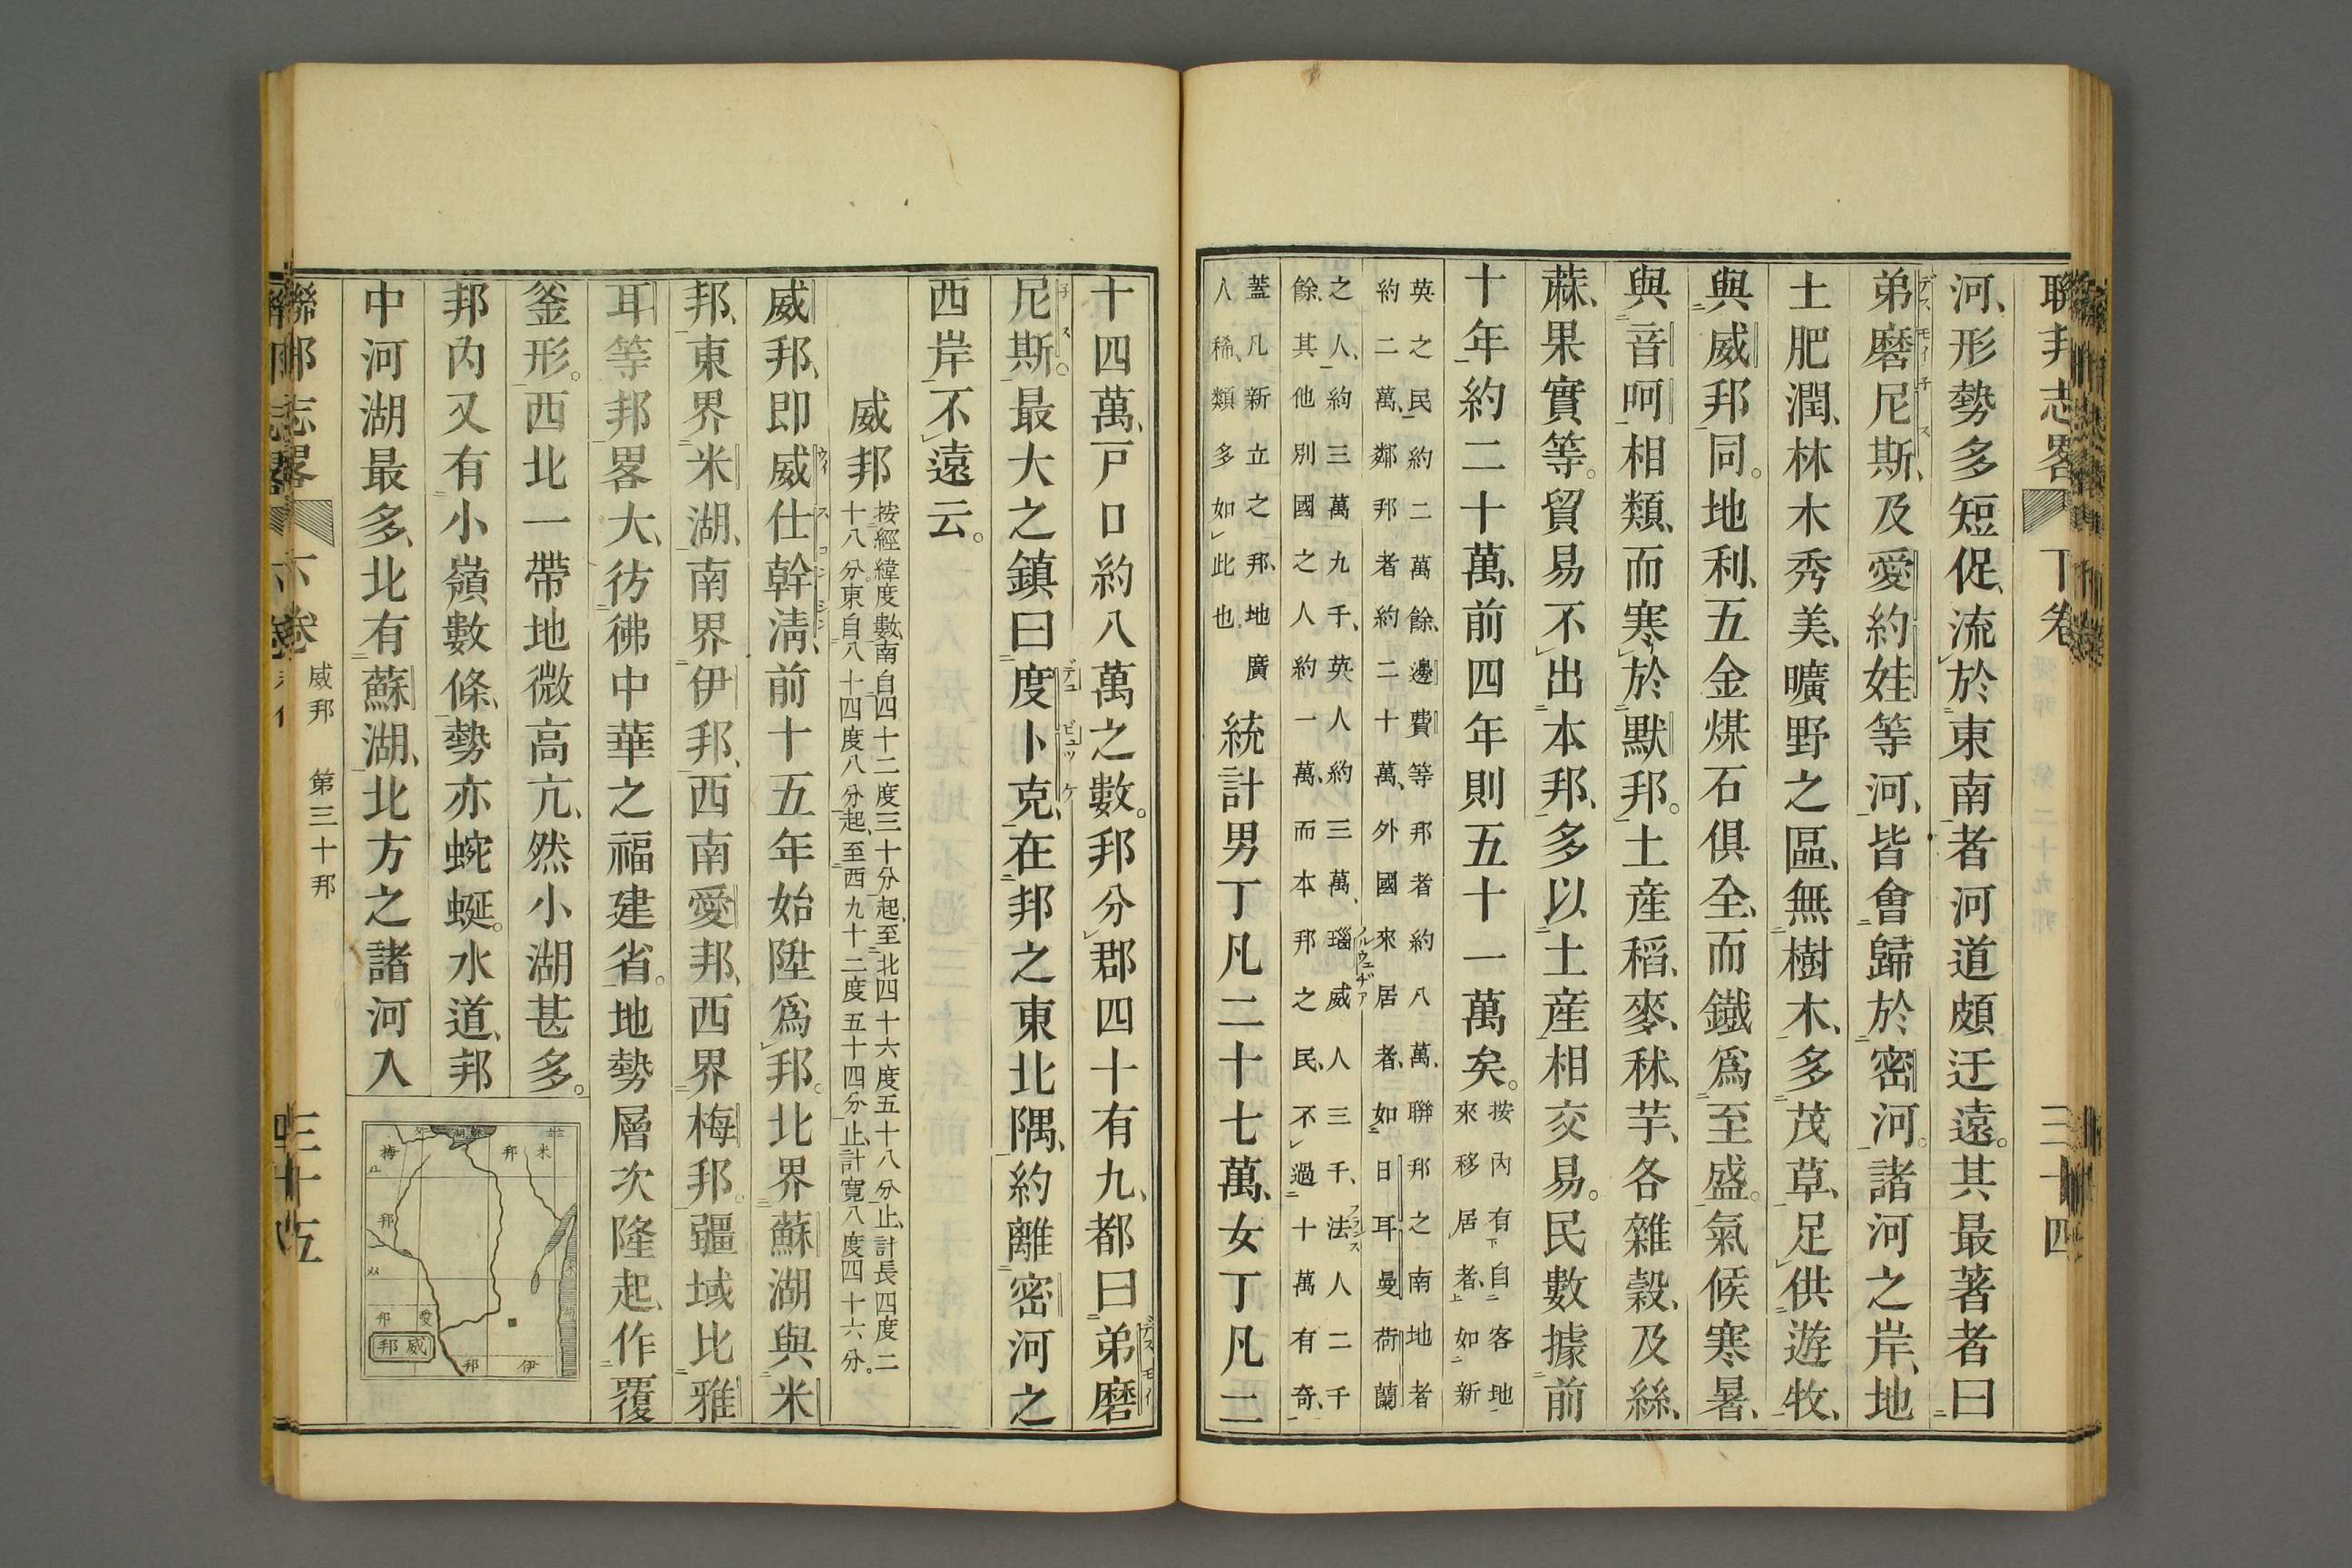 聯邦志畧 下卷 三十四
河、形勢多短促、流於東南者河道頗迂遠。其最著者曰
弟磨尼斯、及愛約娃等河、皆會歸於密河。諸河之岸、地
土肥潤、林木秀美、曠野之區、無樹木、多茂草、足供遊牧、
與威邦同。地利、五金煤石俱全、而鐵爲至盛。氣候寒暑、
與音呵相類、而寒於默邦。土産稻、麥、秫、芋、各雜穀、及絲、
蔴、果實等。貿易不出本邦、多以土産相交易。民數據前
十年約二十萬、前四年則五十一萬矣。按內有自客地
來移居者、如新
英之民、約二萬餘、邊費等邦者約八萬、聯邦之南地者
約二萬、鄰邦者約二十萬、外國來居者、如日耳曼荷蘭
之人、約三萬九千、英人約三萬、瑙威人三千、法人二千
餘、其他別國之人約一萬、而本邦之民、不過十萬有奇、
蓋凡新立之邦、地廣
人稀、類多如此也
統計男丁凡二十七萬、女丁凡二
十四萬、戸口約八萬之數。邦分郡四十有九、都曰弟磨
尼斯。最大之鎮曰度卜克、在邦之東北隅、約離密河之
西岸不遠云。
威邦 按經緯度數、南自四十二度三十分起、至北四十六度五十八分止、計長四度二
十八分、東自八十四度八分起、至西九十二度五十四分止、計寛八度四十六分。
威邦、即威仕幹淸、前十五年始陞爲邦。北界蘇湖與米
邦、東界米湖、南界伊邦、西南愛邦、西界梅邦。疆域比雅
耳等邦畧大、彷彿中華之福建省。地勢層次隆起、作覆
釜形。西北一帶地微高亢、然小湖甚多。
邦內又有小嶺數條、勢亦蜿蜒。水道、邦
中河湖最多、北有蘇湖、北方之諸河入
米
邦
梅
邦
愛
邦
伊
邦
湖
威邦
聯邦志畧 下卷 威邦 第三十邦 三十五